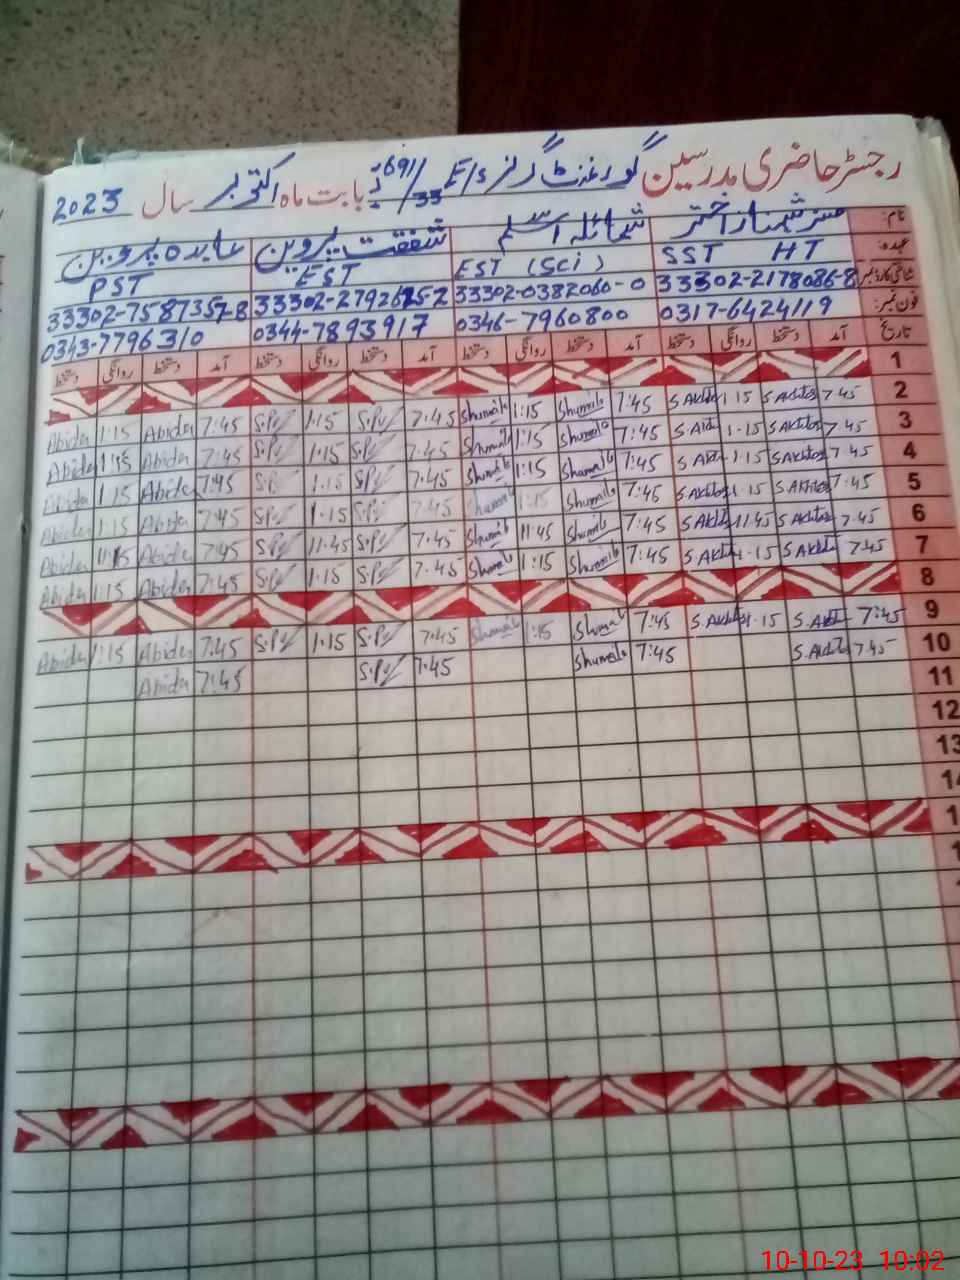 رجسٹر حاضری مدرسین گورنمنٹ گرلز E/s 691/33 بابت ماہ اکتوبر سال 2023
نام: مسز شہناز اختر شمائلہ اسلم شفقت پروین عابدہ پروین
عہدہ: SST HT EST (Sci) EST PST
شناختی کارڈ نمبر 33302-2178086-8 33302-0382060-0 33302-7587357-8
فون نمبر: 0317-6424119 0346-7960800 0344-7893917 0343-7796310
تاریخ آمد دستخط روانگی دستخط آمد دستخط روانگی دستخط آمد دستخط روانگی دستخط آمد دستخط روانگی دستخط
1
2 7:45 S Akhtar 1:15 S Akhtar 7:45 Shumaila 1:15 Shumaila 7:45 S.Pv 1:15 S.Pv 7:45 Abida 1:15 Abida
3 7:45 S Akhtar 1:15 S.Akhtar 7:45 Shumaila 1:15 Shumaila 7:45 S.Pv 1:15 S.Pv 7:45 Abida 1:15 Abida
4 7:45 S Akhtar 1:15 S.Akhtar 7:45 Shumaila 1:15 Shumaila 7:45 S.Pv 1:15 S.Pv 7:45 Abida 1:15 Abida
5 7:45 S Akhtar 1:15 S Akhtar 7:45 Shumaila 1:15 Shumaila 7:45 S.Pv 1:15 S.Pv 7:45 Abida 1:15 Abida
6 7:45 S.Akhtar 11:45 S.Akhtar 7:45 Shumaila 11:45 Shumaila 7:45 S.Pv 11:45 S.Pv 7:45 Abida 11:15 Abida
7 7:45 S.Akhtar 1:15 S.Akhtar 7:45 Shumaila 1:15 Shumaila 7:45 S.Pv 1:15 S.Pv 7:45 Abida 1:15 Abida
8
9 7:45 S.Akhtar 1:15 S.Akhtar 7:45 Shumaila 1:15 Shumaila 7:45 S.Pv 1:15 S.Pv 7:45 Abida 1:15 Abida
10 7:45 S.Akhtar 7:45 Shumaila 7:45 S.Pv 7:45 Abida
11
12
13
14
10-10-23 10:02